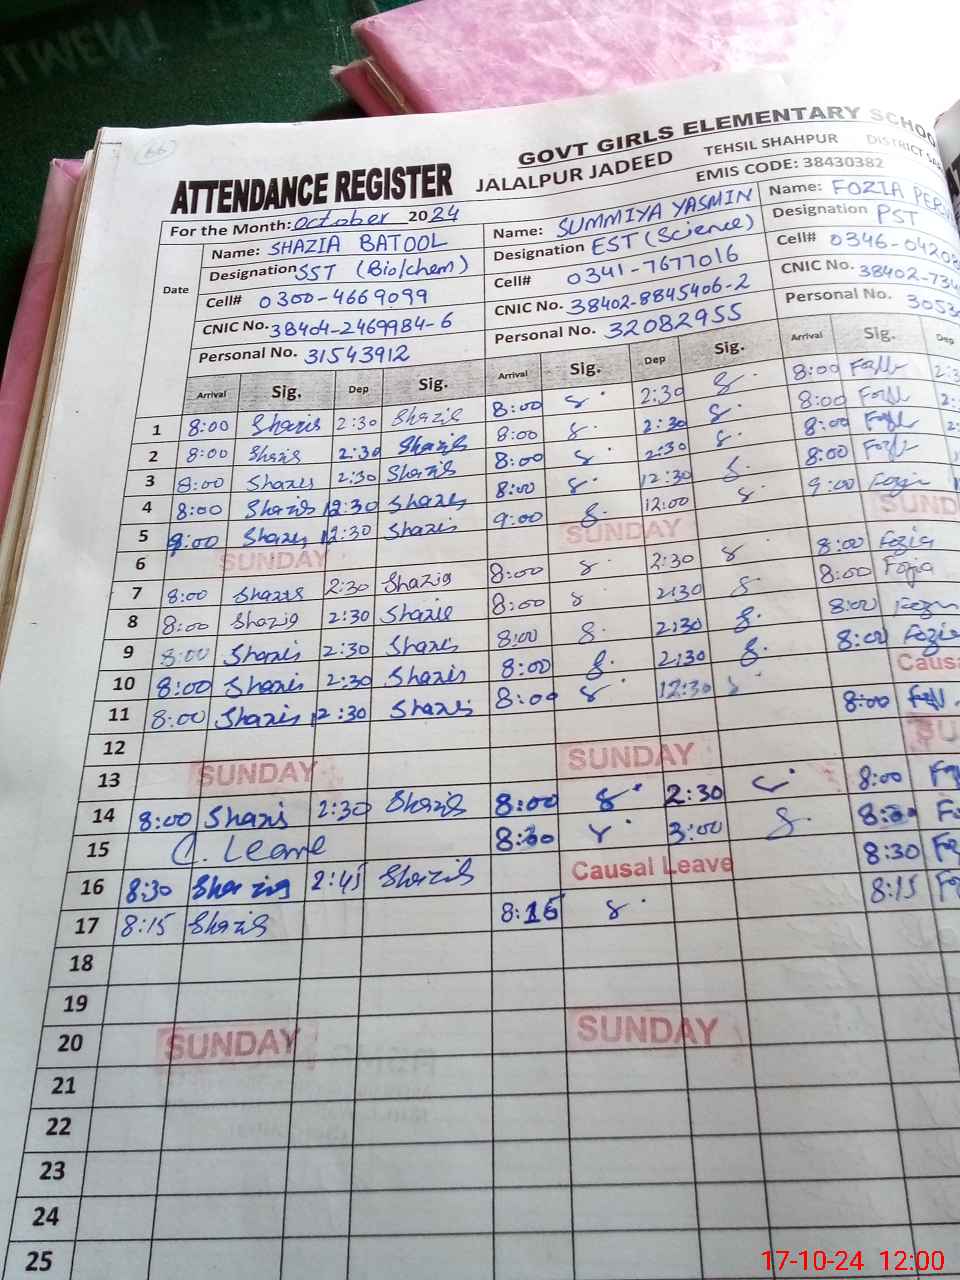 66
GOVT GIRLS ELEMENTARY SCHOO
ATTENDANCE REGISTER JALALPUR JADEED TEHSIL SHAHPUR DISTRICT
EMIS CODE: 38430382
For the Month: October 2024
Date
Name: SHAZIA BATOOL
Designation SST (Bio/chem)
Cell# 0300-4669099
CNIC No. 38404-2469984-6
Personal No. 31543912
Name: SUMMIYA YASMIN
Designation EST (Science)
Cell# 0341-7677016
CNIC No. 38402-8845406-2
Personal No. 32082955
Name: FOZIA
Designation PST
Cell# 0346-04208
CNIC No. 38402-734
Personal No. 3053
Arrival Sig. Dep Sig. Arrival Sig. Dep Sig. Arrival Sig. Dep
1 8:00 Shazis 2:30 Shazis 8:00 2:30 8:00
2 8:00 Shazis 2:30 Shazis 8:00 2:30 8:00
3 8:00 Shazis 2:30 Shazis 8:00 2:30 8:00
4 8:00 Shazis 12:30 Shazis 8:00 12:30 8:00
5 9:00 Shazis 12:30 Shazis 9:00 12:00 9:00
6 SUNDAY SUNDAY SUND
7 8:00 Shazis 2:30 Shazia 8:00 2:30 8:00 Fozia
8 8:00 Shazia 2:30 Shazis 8:00 2:30 8:00 Fozia
9 8:00 Shazis 2:30 Shazis 8:00 2:30 8:00
10 8:00 Shazis 2:30 Shazis 8:00 2:30 8:00 Fozia
11 8:00 Shazis 12:30 Shazis 8:00 12:30 Causa
12 8:00
13 SUNDAY SUNDAY SU
14 8:00 Shazis 2:30 Shazis 8:00 2:30 8:00
15 C. Leave 8:30 3:00 8:30
16 8:30 Shazia 2:45 Shazis Causal Leave 8:30
17 8:15 Shazis 8:15 8:15
18
19
20 SUNDAY SUNDAY
21
22
23
24
25
17-10-24 12:00